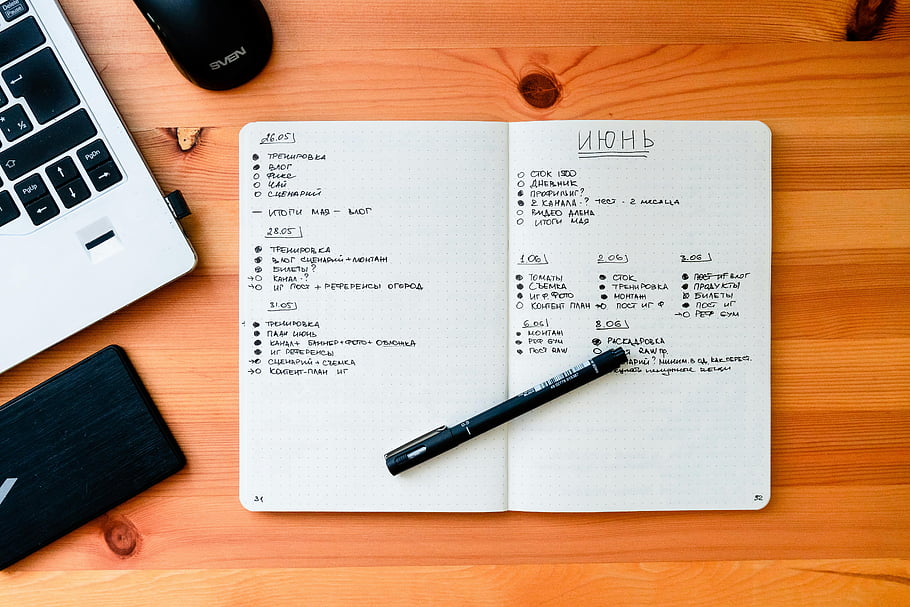 Delete
Pause
PgUp
PgDn
SVEN
26.05
ТРЕНИРОВКА
ВЛОГ
ФИКС
ЧАЙ
СЦЕНАРИЙ
— ИТОГИ МАЯ — ВЛОГ
28.05
ТРЕНИРОВКА
ВЛОГ СЦЕНАРИЙ + МОНТАЖ
БИЛЕТЫ?
КАНАЛ - ?
ИГ ПОСТ + РЕФЕРЕНСЫ ОГОРОД
31.05
ТРЕНИРОВКА
ПЛАН ИЮНЬ
КАНАЛ + БАННЕР + ФОТО + ОБЛОЖКА
ИГ РЕФЕРЕНСЫ
СЦЕНАРИЙ + СЪЕМКА
КОНТЕНТ-ПЛАН ИГ
31
ИЮНЬ
СТОК 1500
ДНЕВНИК
ПРОФИЛИНГ?
2 КАНАЛА - ? ТЕСТ - 2 МЕСЯЦА
ВИДЕО АЛЕНА
ИТОГИ МАЯ
1.06
ТОМАТЫ
СЪЕМКА
ИГ Ф ФОТО
КОНТЕНТ ПЛАН
2.06
СТОК
ТРЕНИРОВКА
МОНТАЖ
ПОСТ ИГ Ф
3.06
ПОСТ ИГ ВЛОГ
ПРОДУКТЫ
БИЛЕТЫ
ПОСТ ИГ
РЕФ БУМ
6.06
МОНТАЖ
РЕФ БУМ
ПОСТ RAW
8.06
РАСКАДРОВКА
RAW ПР.
МИНИМ. В ОД, КАК ПЕРЕСТ.
ВЕЩИ
32